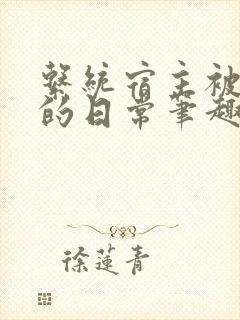 繫統宿主被
的日常筆趣
徐蓮青